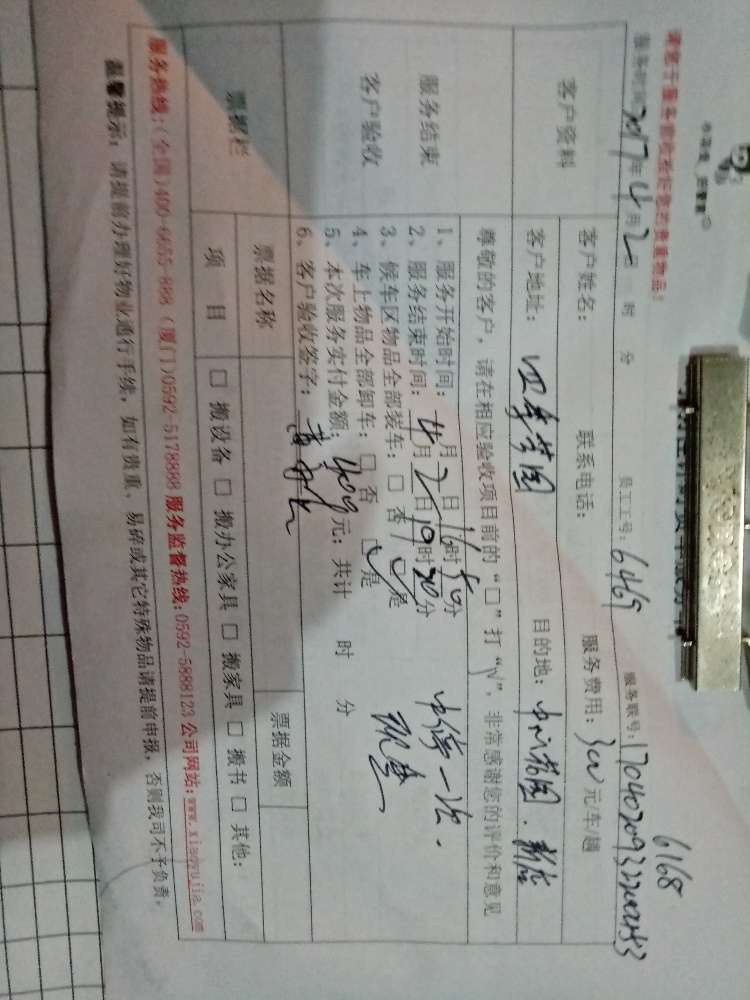 请您于服务前收捡好您的贵重物品!
服务时间:2017年4月2日 时 分 员工工号:6469 服务联号:
6168
客户资料
客户姓名: 联系电话: 服务费用:300元/车/趟
客户地址: 四季花园 目的地:
尊敬的客户,请在相应验收项目前的“□”打“√”,非常感谢您的评价和意见
服务结束
客户验收
1、服务开始时间: 月 日16时50分
2、服务结束时间:4月2日19时20分
3、候车区物品全部装车:□否 是
4、车上物品全部卸车:□否 是
5、本次服务实付金额:400元;共计 时 分
6、客户验收签字:
现金
票据栏
票据名称 票据金额
项 目 □ 搬设备 □ 搬办公家具 □ 搬家具 □ 搬书 □ 其他:
服务热线:(全国)400-6655-888 (厦门)0592-5178888 服务监督热线:0592-5888123 公司网站:www.xiaoyujia.com
温馨提示:请提前办理好物业通行手续,如有贵重、易碎或其它特殊物品请提前申报,否则我司不予负责。